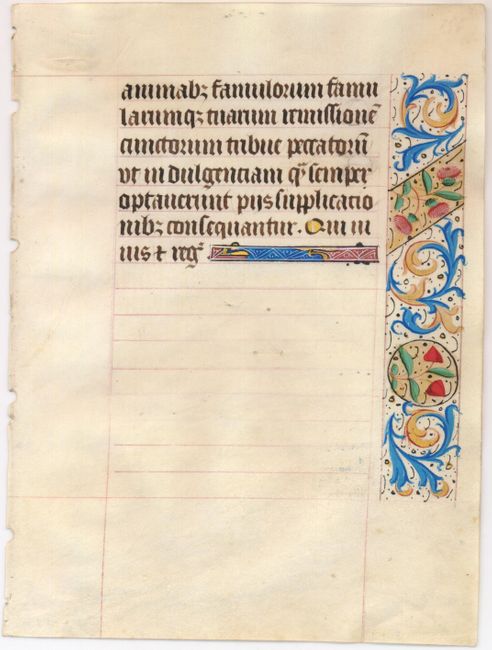 animabꝫ famulorum famu
larumqꝫ tuarum remissionē
cunctorum tribue peccatorū
vt indulgenciam qͣ semper
optauerunt pijs supplicacio
nibꝫ consequantur. Qui vi
uis ⁊ regͣ